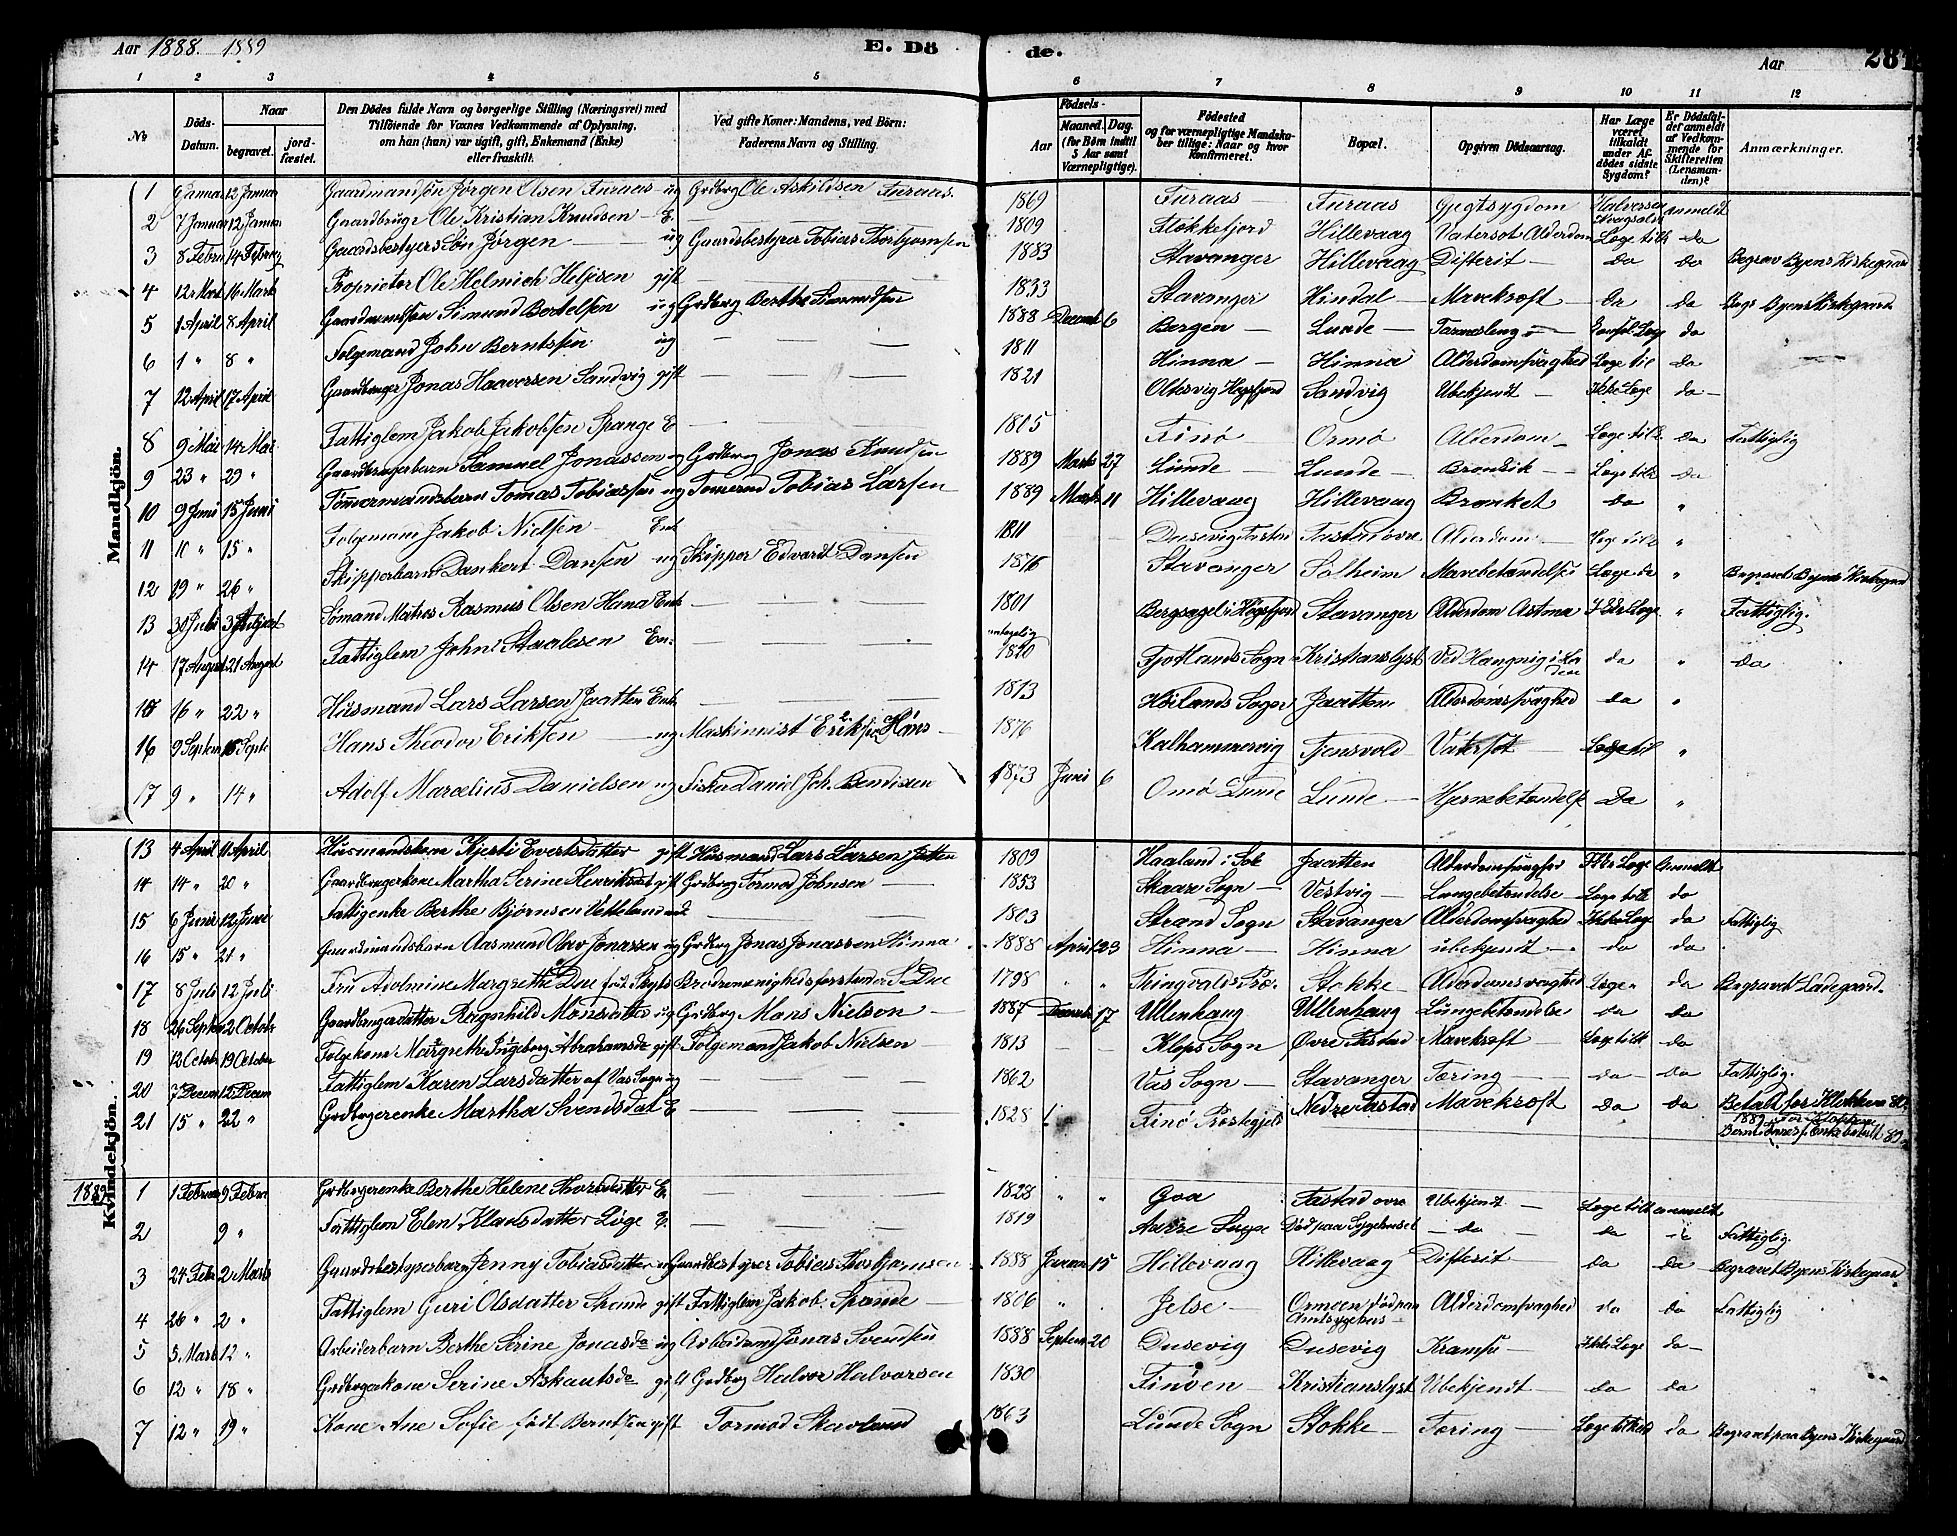 Aar 1888. 1889 E. Dö de. Aar 281
1 2 3 4 5 6 7 8 9 10 11 12
No Döds-Datum. Naar begravet. jordfæstet. Den Dödes fulde Navn og borgerlige Stilling (Næringsvei) med Tilföiende for Voxnes Vedkommende af Oplysning, om han (hun) var ugift, gift, Enkemand (Enke) eller fraskilt. Ved gifte Koner: Mandens, ved Börn: Faderens Navn og Stilling. Födsels- Aar Maaned. Dag. (for Börn indtil 5 Aar samt Værnepligtige). Födested og for værnepligtige Mandskaber tillige: Naar og hvor Konfirmeret. Bopæl. Opgiven Dödsaarsag. Har Læge været tilkaldt under Afdödes sidste Sygdom? Er Dödsfaldet anmeldt af Vedkommende for Skifteretten (Lensmanden)? Anmærkninger.
Mandkjön.
1 9 Januar 12 Januar Gaardmandssön Jörgen Olsen Furaas ug Grdbrg Ole Askildsen Furaas. 1869 Furaas Furaas Halvorsen anmeldt
2 7 Januar 12 Januar Gaardbruger Ole Kristian Knudsen E. 1809 Stokkefjord Hillevaag Vatersot Alderdom Læge tilk da
3 8 Febru 14 Februar Gaardsbestyers Sön Jörgen ug Gaardsbestyrer Tobias Thorbjørnsen 1883 Stavanger Hillevaag Difterit da da Begrav Byens Kirkegaard
4 12 Marts 16 Marts Proprietær Ole Helmich Heljesen gift 1833 Stavanger Hindal Mavekræft da da Begr Byens Kirkegaard
5 1 April 8 April Gaardmandssön Simund Bertelsen ug Grdbrg Berthe Simundsen 1888 Decemb 6 Bergen Lunde da
6 1 " 8 " Folgemand John Berntsen ug 1811 Hinna Hinna Alderdomsvaghed Læge til da
7 12 April 17 April Gaardbruger Jonas Haaversen Sandvig gift 1821 Oltesvig Høgsfjord Sandvig Ubekjendt Ikke Læge da
8 9 Mai 14 Mai Fattiglem Jakob Jakobsen Spange E 1815 Finö Ormö Alderdom Læge tilk da Fattiglig
9 23 " 29 " Gaardbrugerbarn Samuel Jonassen ug Grdbrug Jonas Knudsen 1889 Marts 27 Lunde Lunde Læge tilk da
10 9 Juni 15 Juni Tömmermandsbarn Tomas Tobiassen ug Tömermd Tobias Larsen 1889 Marts 11 Hillevaag Hillevaag Bronket da "
11 10 " 15 " Folgemand Jakob Nielsen Enk 1811 Dusevig Tastad Tastad øvre Alderdom Læge tilk "
12 19 " 26 " Skipperbarn Dankert Dansen ug Skipper Edvard Dansen 1876 Stavanger Solheim Mavebetændelse Læge da " Begravet Byens Kirkegaard
13 30 Juli 3 August Sömand Matros Rasmus Olsen Hana Enk 1801 Bergsagel i Høgsfjord Stavanger Alderdom Astma Ikke Læge " Fattiglig.
14 17 August 21 August Fattiglem John Staalesen En: 1810 Fjotlands Sogn Kristianslyst Ved Hængning i da " da
15 16 " 22 " Husmand Lars Larsen Jaatten Enk 1813 Høilands Sogn Jaatten Alderdomsvaghed da "
16 9 Septem 15 Septe Hans Theodor Eriksen ug Maskinmist Eriksen Höns 1876 Kalhammervig Tjensvold Vatersot Læge til "
17 9 " 14 " Adolf Marcelius Danielsen ug Fisker Daniel Joh. Bendixen 1873 Juni 6 Omö Lunde Hjernebetændelse Da "
Kvindekjön.
13 4 April 11 April Husmandskone Kjersti Evertsdatter gift Husmand Lars Larsen Jatten 1809 Haaland i Sok Jaatten Alderdomsvaghed Ikke Læge Anmeldt
14 14 " 20 " Gaardbrugerkone Martha Serine Henriksdat gift Grdbrg Tormod Johnsen 1853 Skaare Sogn Vestvig Lungebetændelse Læge tilk da
15 6 Juni 12 Juni Fattigenke Berthe Bjørnsen Vetteland enk 1803 Strand Sogn Stavanger Alderdomsvaghed Ikke Læge da Fattiglig
16 15 " 21 " Gaardmandsbarn Aasmund Olav Jonassen ug Grdbrg Jonas Jonassen Hinna 1888 April 23 Hinna Hinna ubekjendt da da
17 8 Juli 12 Juli Fru Adolmine Margrethe Due född Brödremenighedsforstander S. Due 1798 " " Stokke Alderdomsvaghed Læge " da Begravet Ladegaard.
18 26 Septem 2 October Gaardbrugerdatter Ragnhild Monsdatter ug Grdbrg Mons Nielsen 1887 Decemb 17 Ullenhaug Ullenhaug Lungebetændelse da da
19 13 Octob 19 October Folgekone Margreth Ingeborg Abrahamsda gift Folgemand Jakob Nielsen 1813 Klops Sogn Øvre Tastad Mavekræft Læge tilk da
20 7 Decem 12 Decem Fattiglem Karen Larsdatter af Vas Sogn ug 1862 Vas Sogn Stavanger Tæring da da Fattiglig.
21 15 " 22 " Grdbrgerenke Martha Svendsdat E 1828 Finö Præstegjeld Nedre Tastad Mavekræft da da Betalt for Klokkene 80
1889 for Klokkene
1889 1 1 Februar 9 Febru Grdbrgerenke Berthe Helene Thorsdatter E. 1828 " " Goa Tastad øvre Ubekjendt Læge tilk anmeldt
2 9 " Fattiglem Elen Klausdatter Loge E. 1819 Död paa Sygehuset da da Fattiglig.
3 24 Feb 2 Marts Gaardsbestyrerbarn Jenny Tobiasdatter ug Gaardbestyrer Tobias Thorbjørnsen 1888 Januar 15 Hillevaag Hillevaag Difterit da da Begravet Byens Kirkegaard
4 26 " 2 " Fattiglem Guri Olsdatter gift Fattiglem Jakob Spande 1806 " Jelse Ormøen död paa Amtsygehus Alderdomsvaghed da da Fattiglig
5 5 Mart 12 " Arbeiderbarn Berthe Serine Jonasda ug Arbeidsmd Jonas Svendsen 1888 Septem 20 Dusevig Dusevig Krampe Ikke Læge da
6 12 " 18 " Grdbrgerkone Serine Askautsda gift Grdbrg Halvor Halvorsen 1830 Finöen Kristianslyst Ubekjendt da da
7 12 " 19 " Kone Ane Sofie född Berntsen gift Tormod Skavland 1863 Lunde Sogn Stokke Tæring Læge tilkald da Begravet paa Byens Kirkegaard